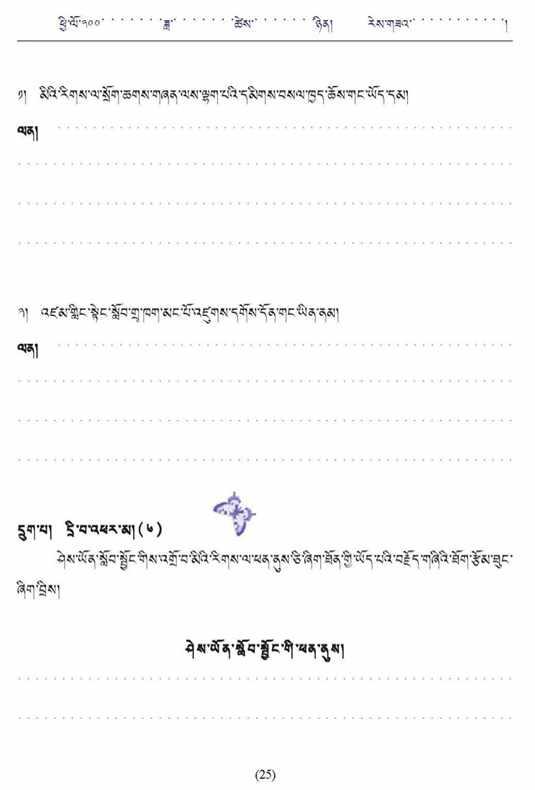 ཕྱི་ལོ་༢༠༠ ཟླ་ ཚེས་ ཉིན། རེས་གཟའ་ །
༡། མིའི་རིགས་ལ་སྲོག་ཆགས་གཞན་ལས་ལྷག་པའི་དམིགས་བསལ་ཁྱད་ཆོས་གང་ཡོད་དམ།
ལན།
༢། འཛམ་གླིང་སྟེང་སློབ་གྲྭ་ཁག་མང་པོ་འཛུགས་དགོས་དོན་གང་ཡིན་ནམ།
ལན།
དྲུག་པ། དྲི་བ་འཕར་མ། (༦)
ཤེས་ཡོན་སློབ་སྦྱོང་གིས་འགྲོ་བ་མིའི་རིགས་ལ་ཕན་ནུས་ཅི་ཞིག་ཐོན་གྱི་ཡོད་པའི་བརྗོད་གཞིའི་ཐོག་རྩོམ་ཐུང་
ཞིག་བྲིས།
ཤེས་ཡོན་སློབ་སྦྱོང་གི་ཕན་ནུས།
(25)